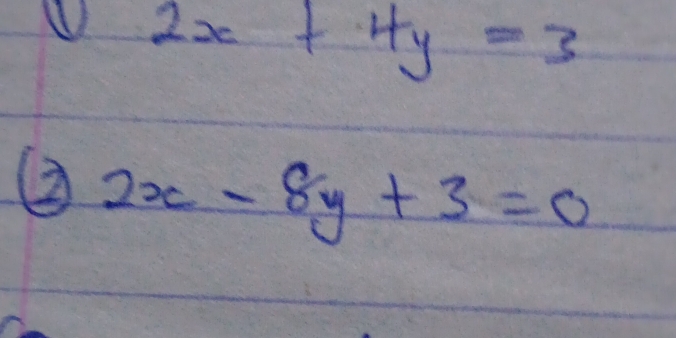 ① 2x + 4y = 3
② 2x - 8y + 3 = 0